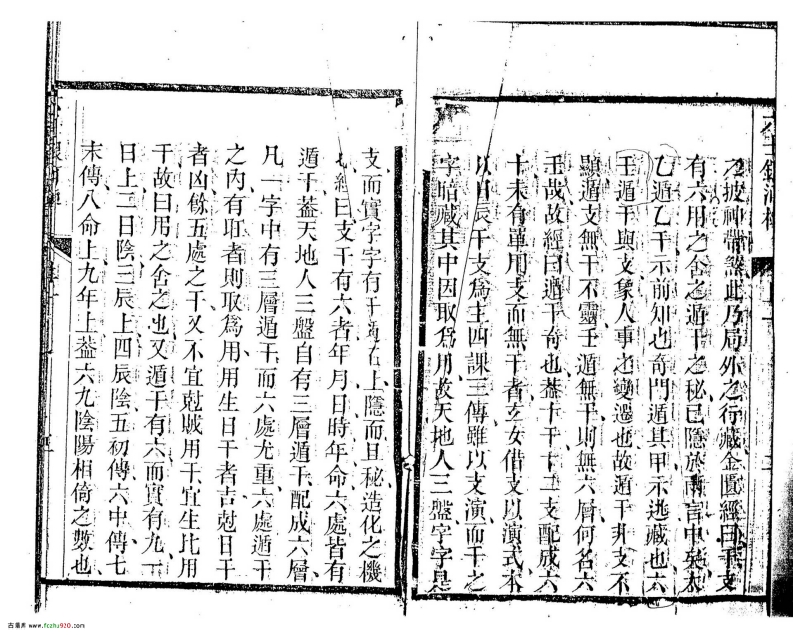 之披神帶煞此乃局外之行藏金匱經曰干支
有六用之舍之遁干之秘已隱於兩言中矣太
乙遁乙干示前知也奇門遁其甲示迯藏也六
壬遁干與支象人事之變遷也故遁干非支不
顯遁支無干不靈壬遁無干則無六層何名六
壬哉故經曰遁干奇也葢十干十二支配成六
十未有單用支而無干者玄女借支以演式本
以日辰干支爲主四課三傳雖以支演而干之
字暗藏其中因取爲用故天地人三盤字字是
支而實字字有干寓在上隱而且秘造化之機
也經曰支干有六者年月日時年命六處皆有
遁干葢天地人三盤自有三層遁干配成六層
凡一字中有三層遁干而六處尤重六處遁干
之內有取者則取爲用用生日干者吉尅日干
者凶餘五處之干又不宜尅賊用干宜生比用
干故曰用之舍之也又遁干有六而實有九一
日上二日陰三辰上四辰陰五初傳六中傳七
末傳八命上九年上葢六九陰陽相倚之數也
古籍网 www.fczhu920.com